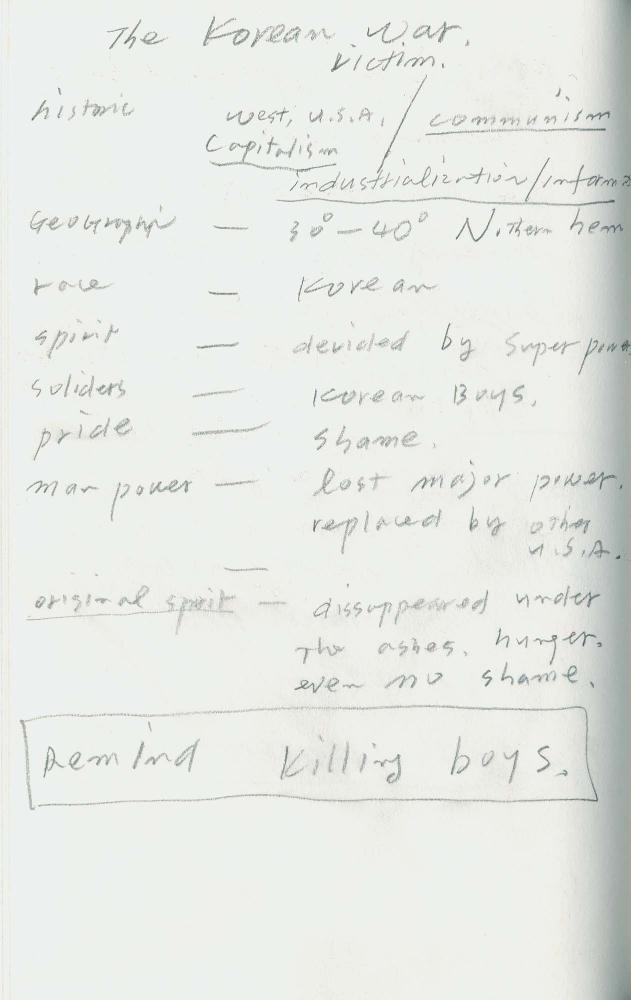 The Korean War.
victim.
historic west, U.S.A. / communism
Capitalism
industrialization/inform
Geographi — 30° — 40° N.thern hem
race — Korean
spirit — devided by superpowe
soliders — Korean Boys.
pride — shame.
man power — lost major power.
replaced by other
U.S.A.
—
original spirit — dissuppeared under
The ashes. hunger.
even no shame.
Remind Killing boys.